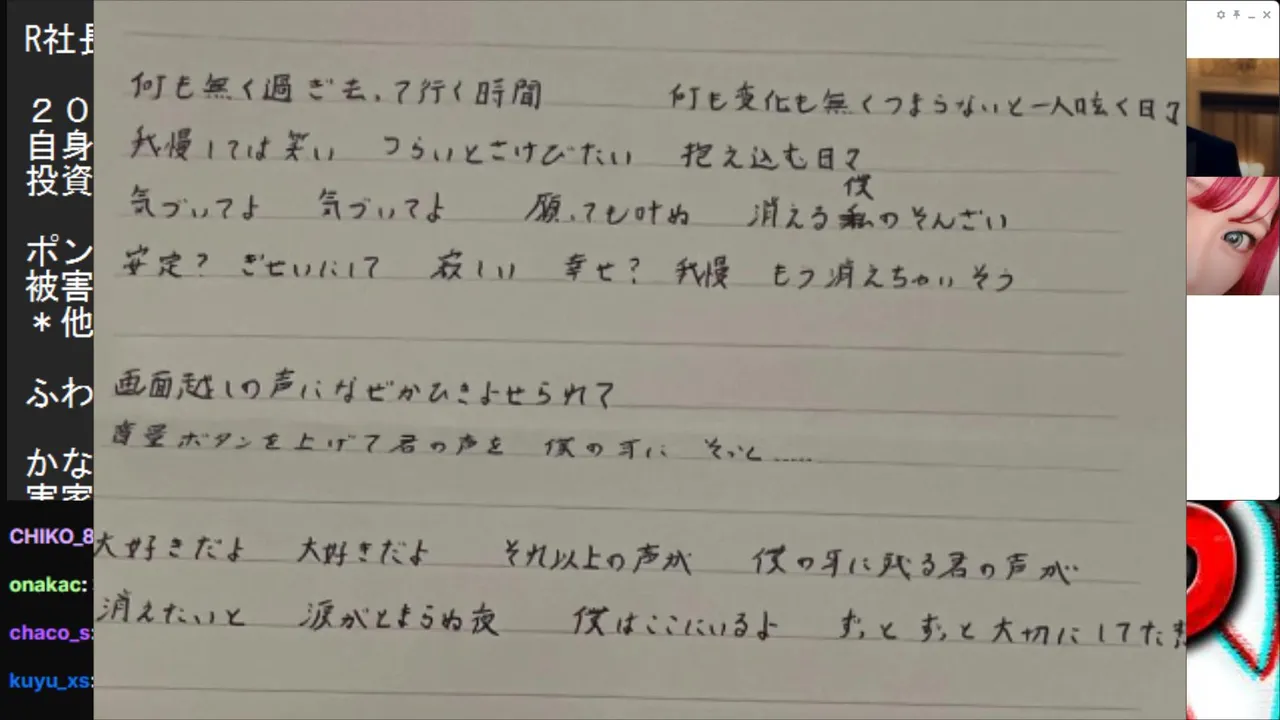 R社長
２０
自身
投資
ポン
被害
＊他
ふわ
かな
実家
CHIKO_8
onakac:
chaco_s:
kuyu_xs:
何も無く過ぎ去って行く時間　何も変化も無くつまらないと一人呟く日々
我慢しては笑い　つらいとさけびたい　抱え込む日々
僕
気づいてよ　気づいてよ　願っても叶ぬ　消える私のそんざい
安定？　ぎせいにして　寂しい　幸せ？　我慢　もう消えちゃいそう
画面越しの声になぜかひきよせられて
音量ボタンを上げて君の声を　僕の耳に　そっと……
大好きだよ　大好きだよ　それ以上の声が　僕の耳に残る君の声が
消えたいと　涙がとまらぬ夜　僕はここにいるよ　ずっと ずっと 大切にしてた